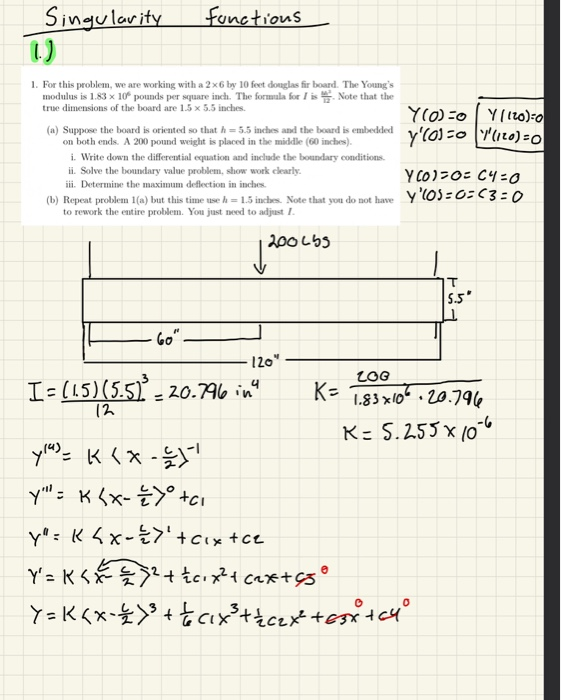 Singularity Functions
(1.)
1. For this problem, we are working with a 2×6 by 10 feet douglas fir board. The Young's
modulus is 1.83 × 10⁶ pounds per square inch. The formula for I is bh³/12. Note that the
true dimensions of the board are 1.5 × 5.5 inches.
(a) Suppose the board is oriented so that h = 5.5 inches and the board is embedded
on both ends. A 200 pound weight is placed in the middle (60 inches).
i. Write down the differential equation and include the boundary conditions.
ii. Solve the boundary value problem, show work clearly.
iii. Determine the maximum deflection in inches.
(b) Repeat problem 1(a) but this time use h = 1.5 inches. Note that you do not have
to rework the entire problem. You just need to adjust I.
Y(0)=0 Y(120)=0
Y'(0)=0 Y'(120)=0
Y(0)=0= C4=0
Y'(0)=0=C3=0
200Lbs
5.5"
60"
120"
I = (1.5)(5.5)³/12 = 20.796 in⁴
K = 200/1.83×10⁶ · 20.796
K = 5.255 × 10⁻⁶
Y⁽⁴⁾ = K <x - L/2>⁻¹
Y''' = K <x - L/2>⁰ + C1
Y'' = K <x - L/2>¹ + C1x + C2
Y' = K <x - L/2>² + 1/2 C1x² + C2x + C3 0
Y = K <x - L/2>³ + 1/6 C1x³ + 1/2 C2x² + C3x 0 + C4 0